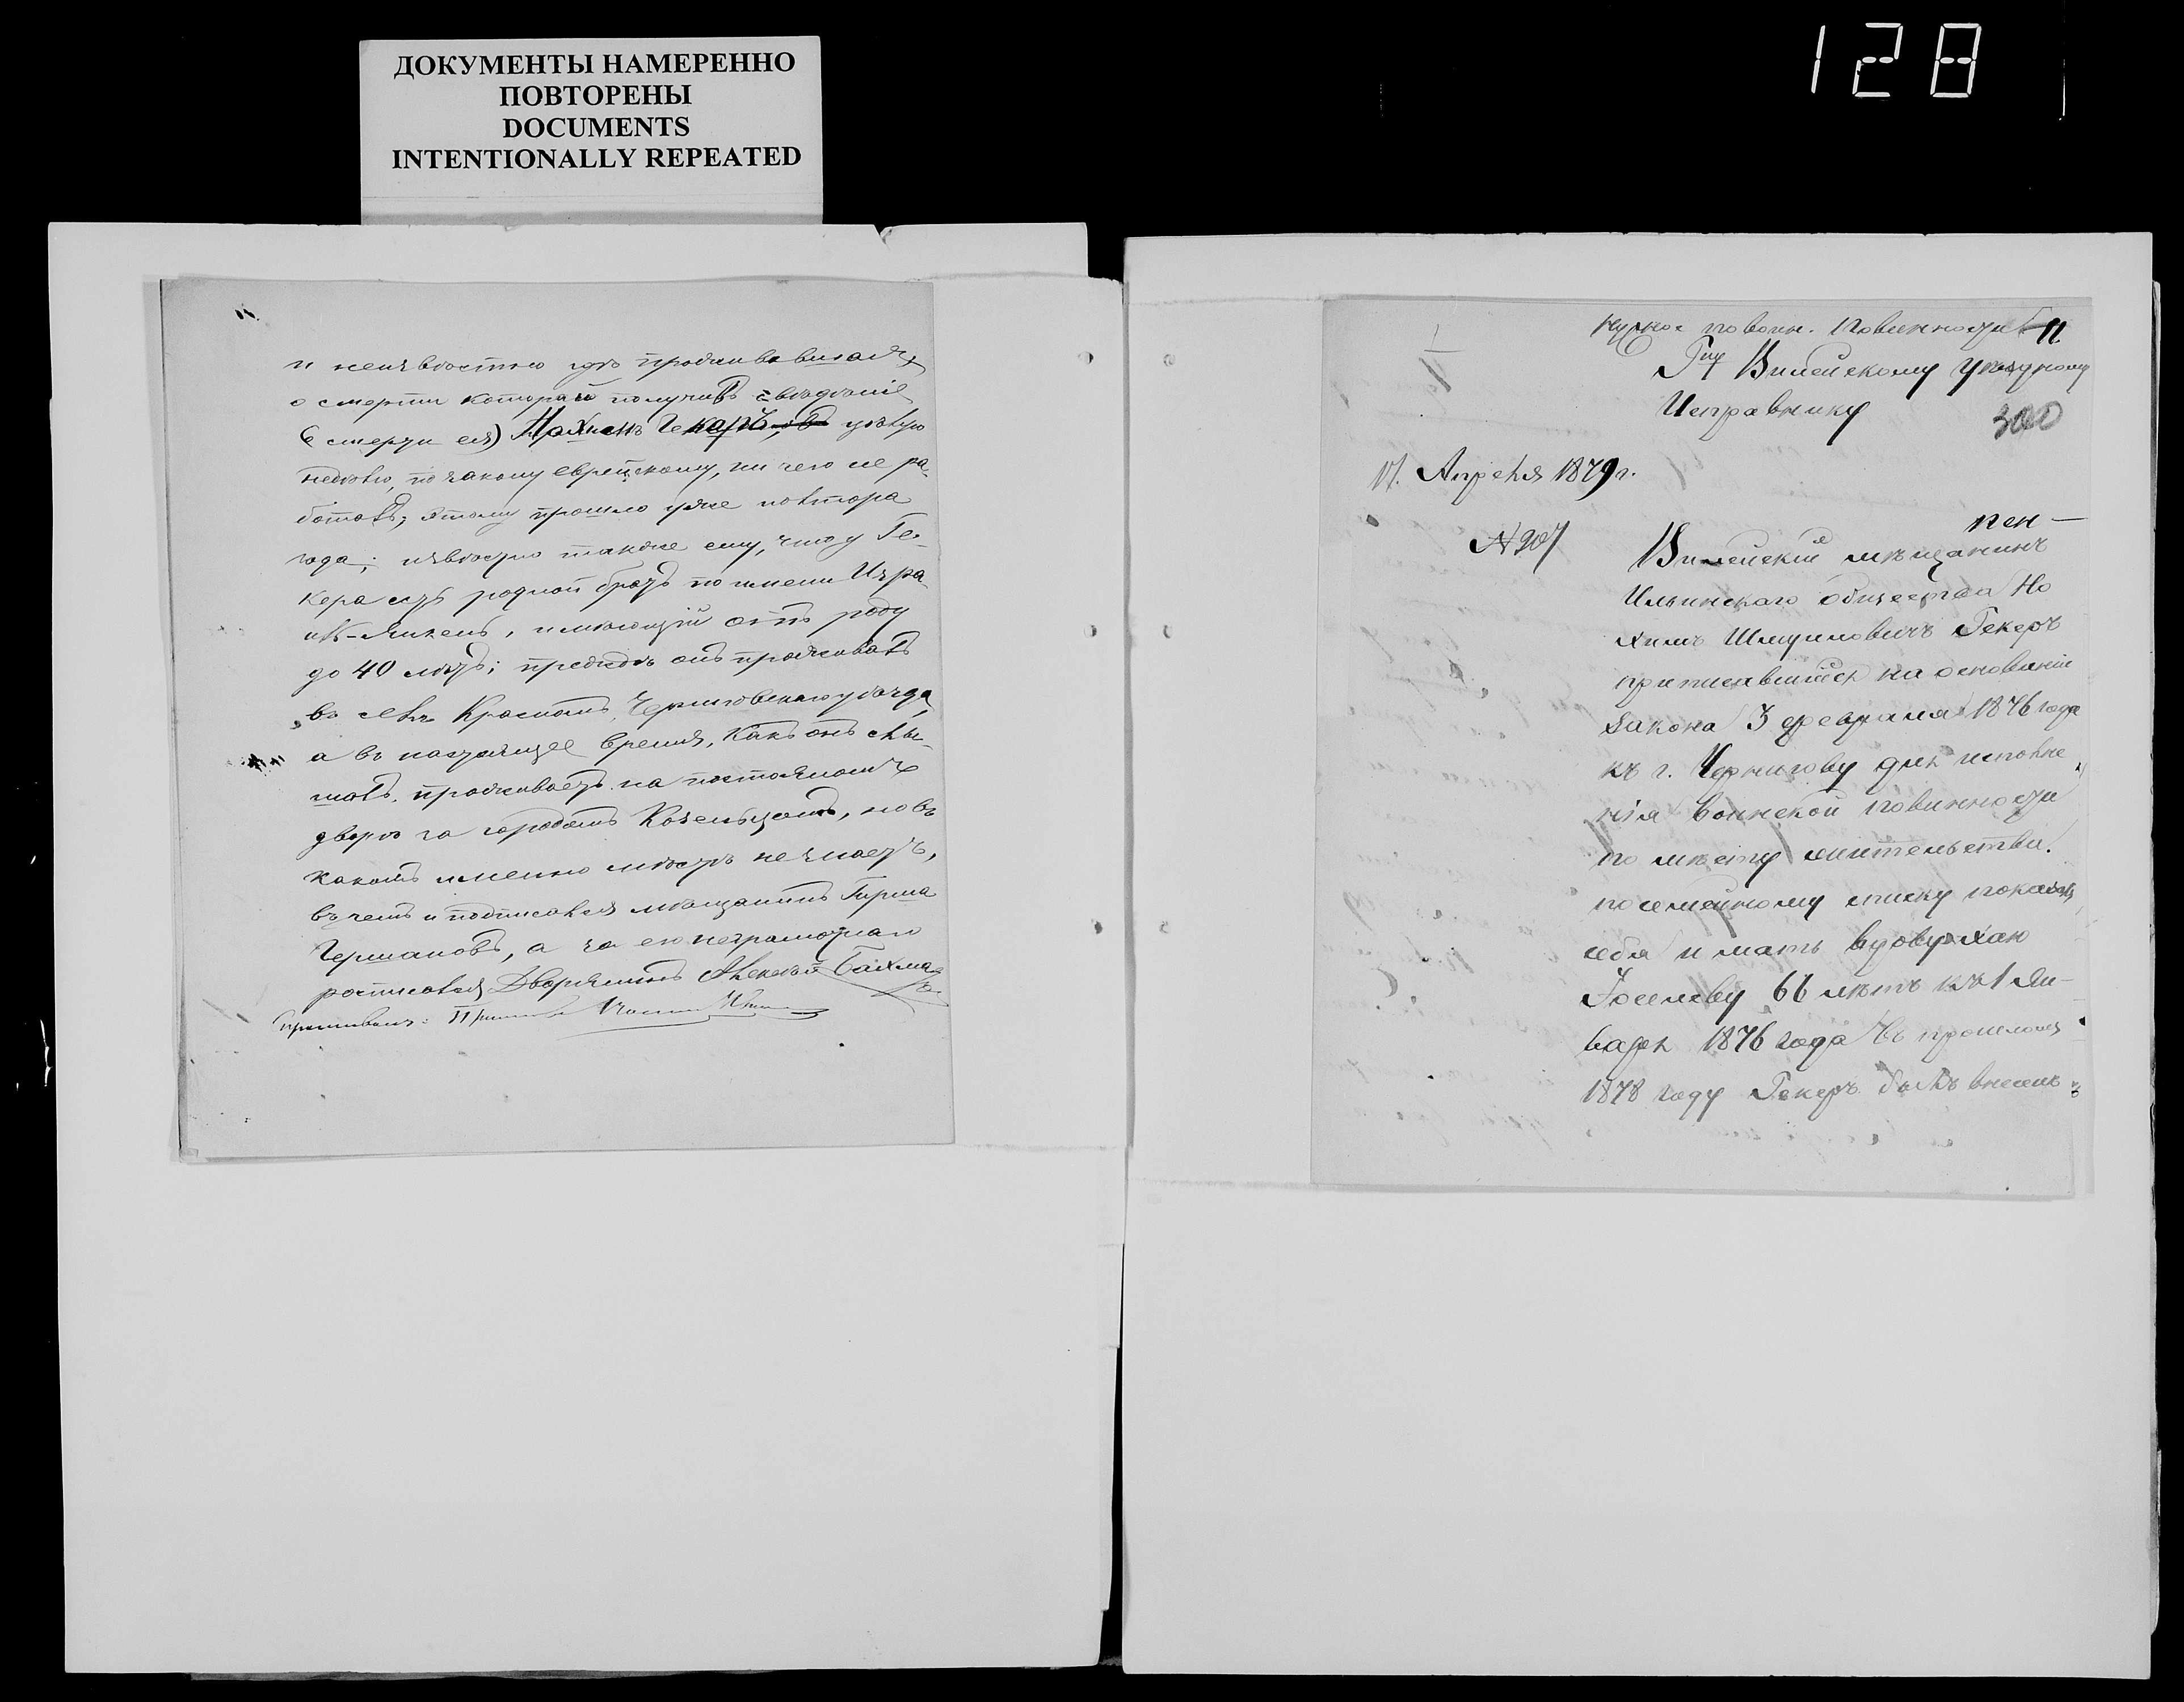 ДОКУМЕНТЫ НАМЕРЕННО
ПОВТОРЕНЫ
DOCUMENTS
INTENTIONALLY REPEATED
128
и неизвѣстно гдѣ проживавшая,
о смерти которой получивъ свѣдѣніе
(о смерти ея) Нохимъ Гекеръ цѣлую
недѣлю, по закону еврейскому, ни чего не ра-
боталъ; этому прошло уже полтора
года; извѣстно также ему, что у Ге-
кера есть родной братъ по имени Изра-
иль, имѣющій отъ роду
до 40 лѣтъ; прежде онъ проживалъ
въ селѣ Красномъ, Черниговскаго уѣзда,
а въ настоящее время, какъ онъ слы-
шалъ, проживаетъ на постояломъ
дворѣ за городомъ Козельцомъ, но въ
какомъ именно мѣстѣ не знаетъ,
въ чемъ и подписался мѣщанинъ Гирша
Германовъ, а за его неграмотнаго
росписался Дворянинъ Алексѣй
Нужное по воин. повинности 11
Гну Вилейскому Уѣздному
Исправнику
300
17. Апрѣля 1879 г.
№ 207
Вилейскій мѣщанинъ
Ильинскаго общества Но
химъ Шмуиловичъ Гекеръ
приписавшійся на основаніи
закона 3 февраля 1876 года
къ г. Чернигову для исполне
нія воинской повинности
по мѣсту жительства.
по семейному списку показалъ
себя и мать вдову Хаю
Іосилеву 66 лѣтъ къ 1 Ян-
варя 1876 года въ прошломъ
1878 году Гекеръ былъ внесенъ